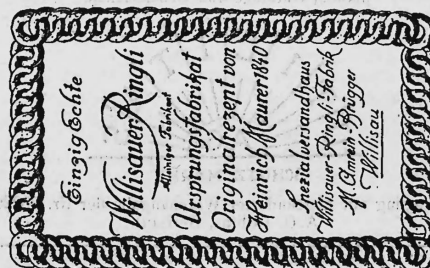 Einzig Echte
Willisauer-Ringli
Alleiniger Fabrikant
Ursprungsfabrikat
Originalrezept von
Heinrich Maurer 1840
Spezialversandhaus
Willisauer-Ringli-Fabrik
M. Gnrein-Brügger
Willisau